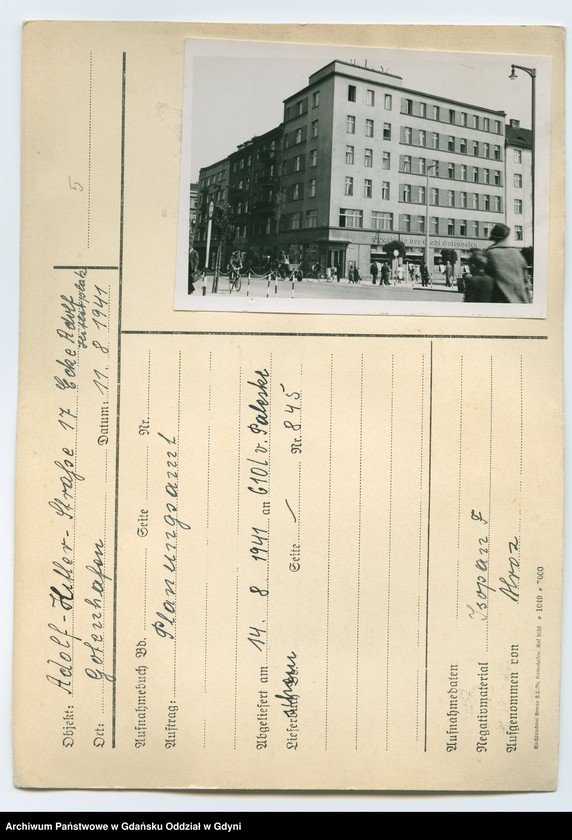 5
Objekt: Adolf-Hitler-Straße 17 Ecke Adolf
Hitlerplatz
Ort: Gotenhafen Datum: 11. 8 1941
Aufnahmebuch Bd. Seite Nr.
Auftrag: Planungsamt
Abgeliefert am 14. 8. 1941 an 610/
Seite Nr. 845
Aufnahmedaten
Negativmaterial Isopan F
Aufgenommen von
der Stadt Gotenhafen
Archiwum Państwowe w Gdańsku Oddział w Gdyni